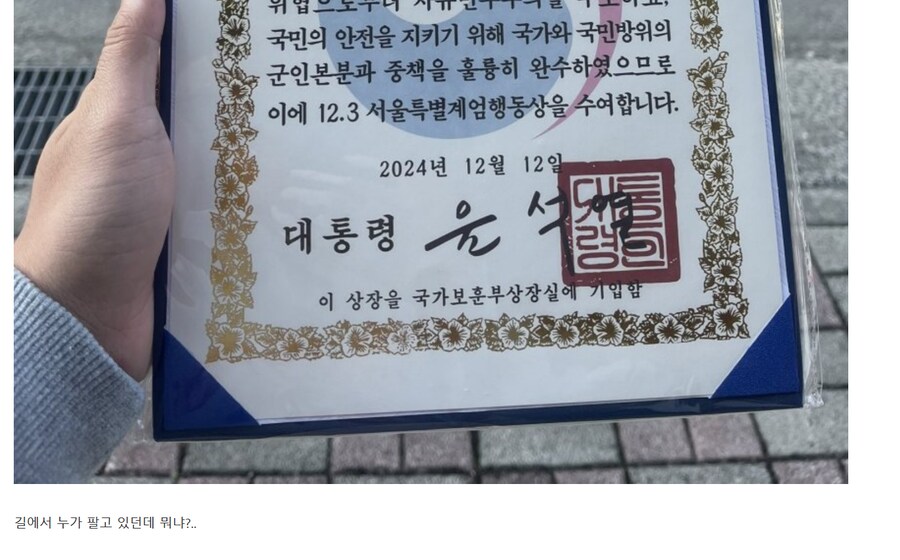 위협으로부터 자유민주주의를 수호하고,
국민의 안전을 지키기 위해 국가와 국민방위의
군인본분과 중책을 훌륭히 완수하였으므로
이에 12.3 서울특별계엄행동상을 수여합니다.
2024년 12월 12일
대통령 윤석열
대통령의인
이 상장을 국가보훈부상장실에 기입함
길에서 누가 팔고 있던데 뭐냐?..